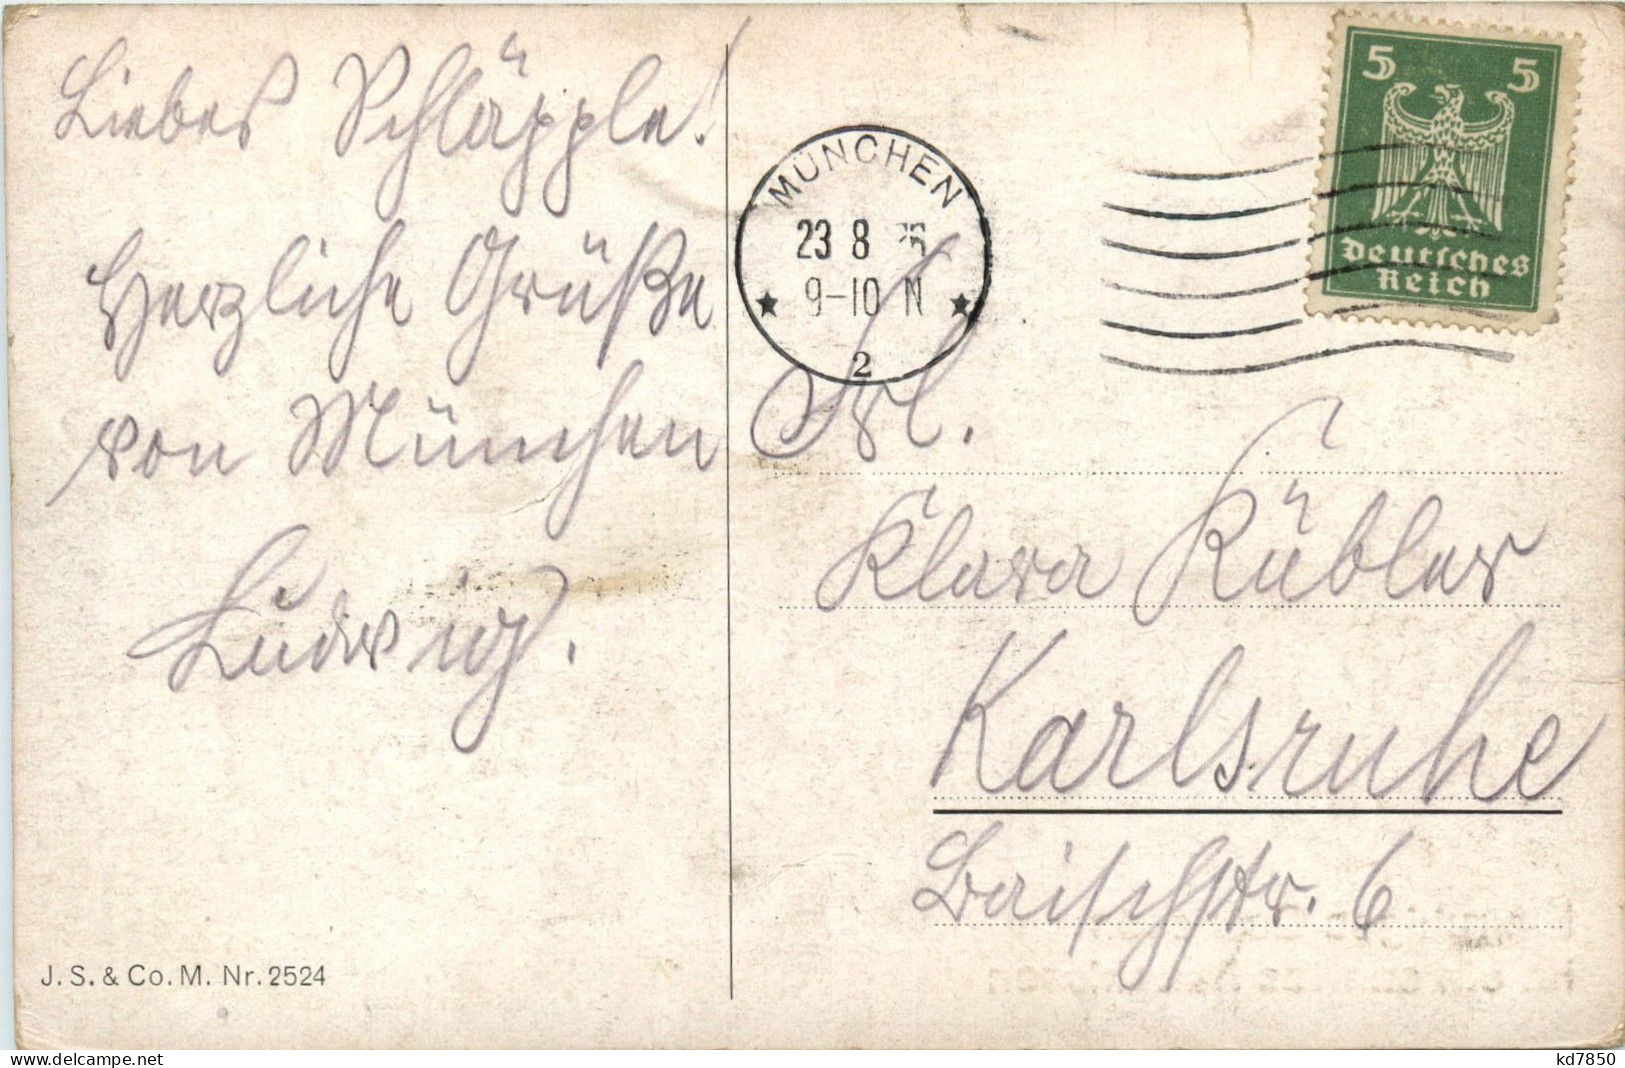 Liebes Schläpple!
Herzliche Grüße
von München
Ludwig.
J. S. & Co. M. Nr. 2524
MÜNCHEN
23 8
9-10 N
2
5 5
Deutsches
Reich
Frl.
Klara Kübler
Karlsruhe
Baischstr. 6
www.delcampe.net
kd7850